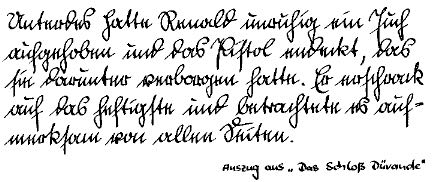 Unterdes hatte Renald unruhig ein Tuch
aufgehoben und das Pistol endeckt, das
sie darunter verborgen hatte. Er erschrack
auf das heftigste und betrachtete es auf-
merksam von allen Seiten.
Auszug aus „Das Schloß Dürande"